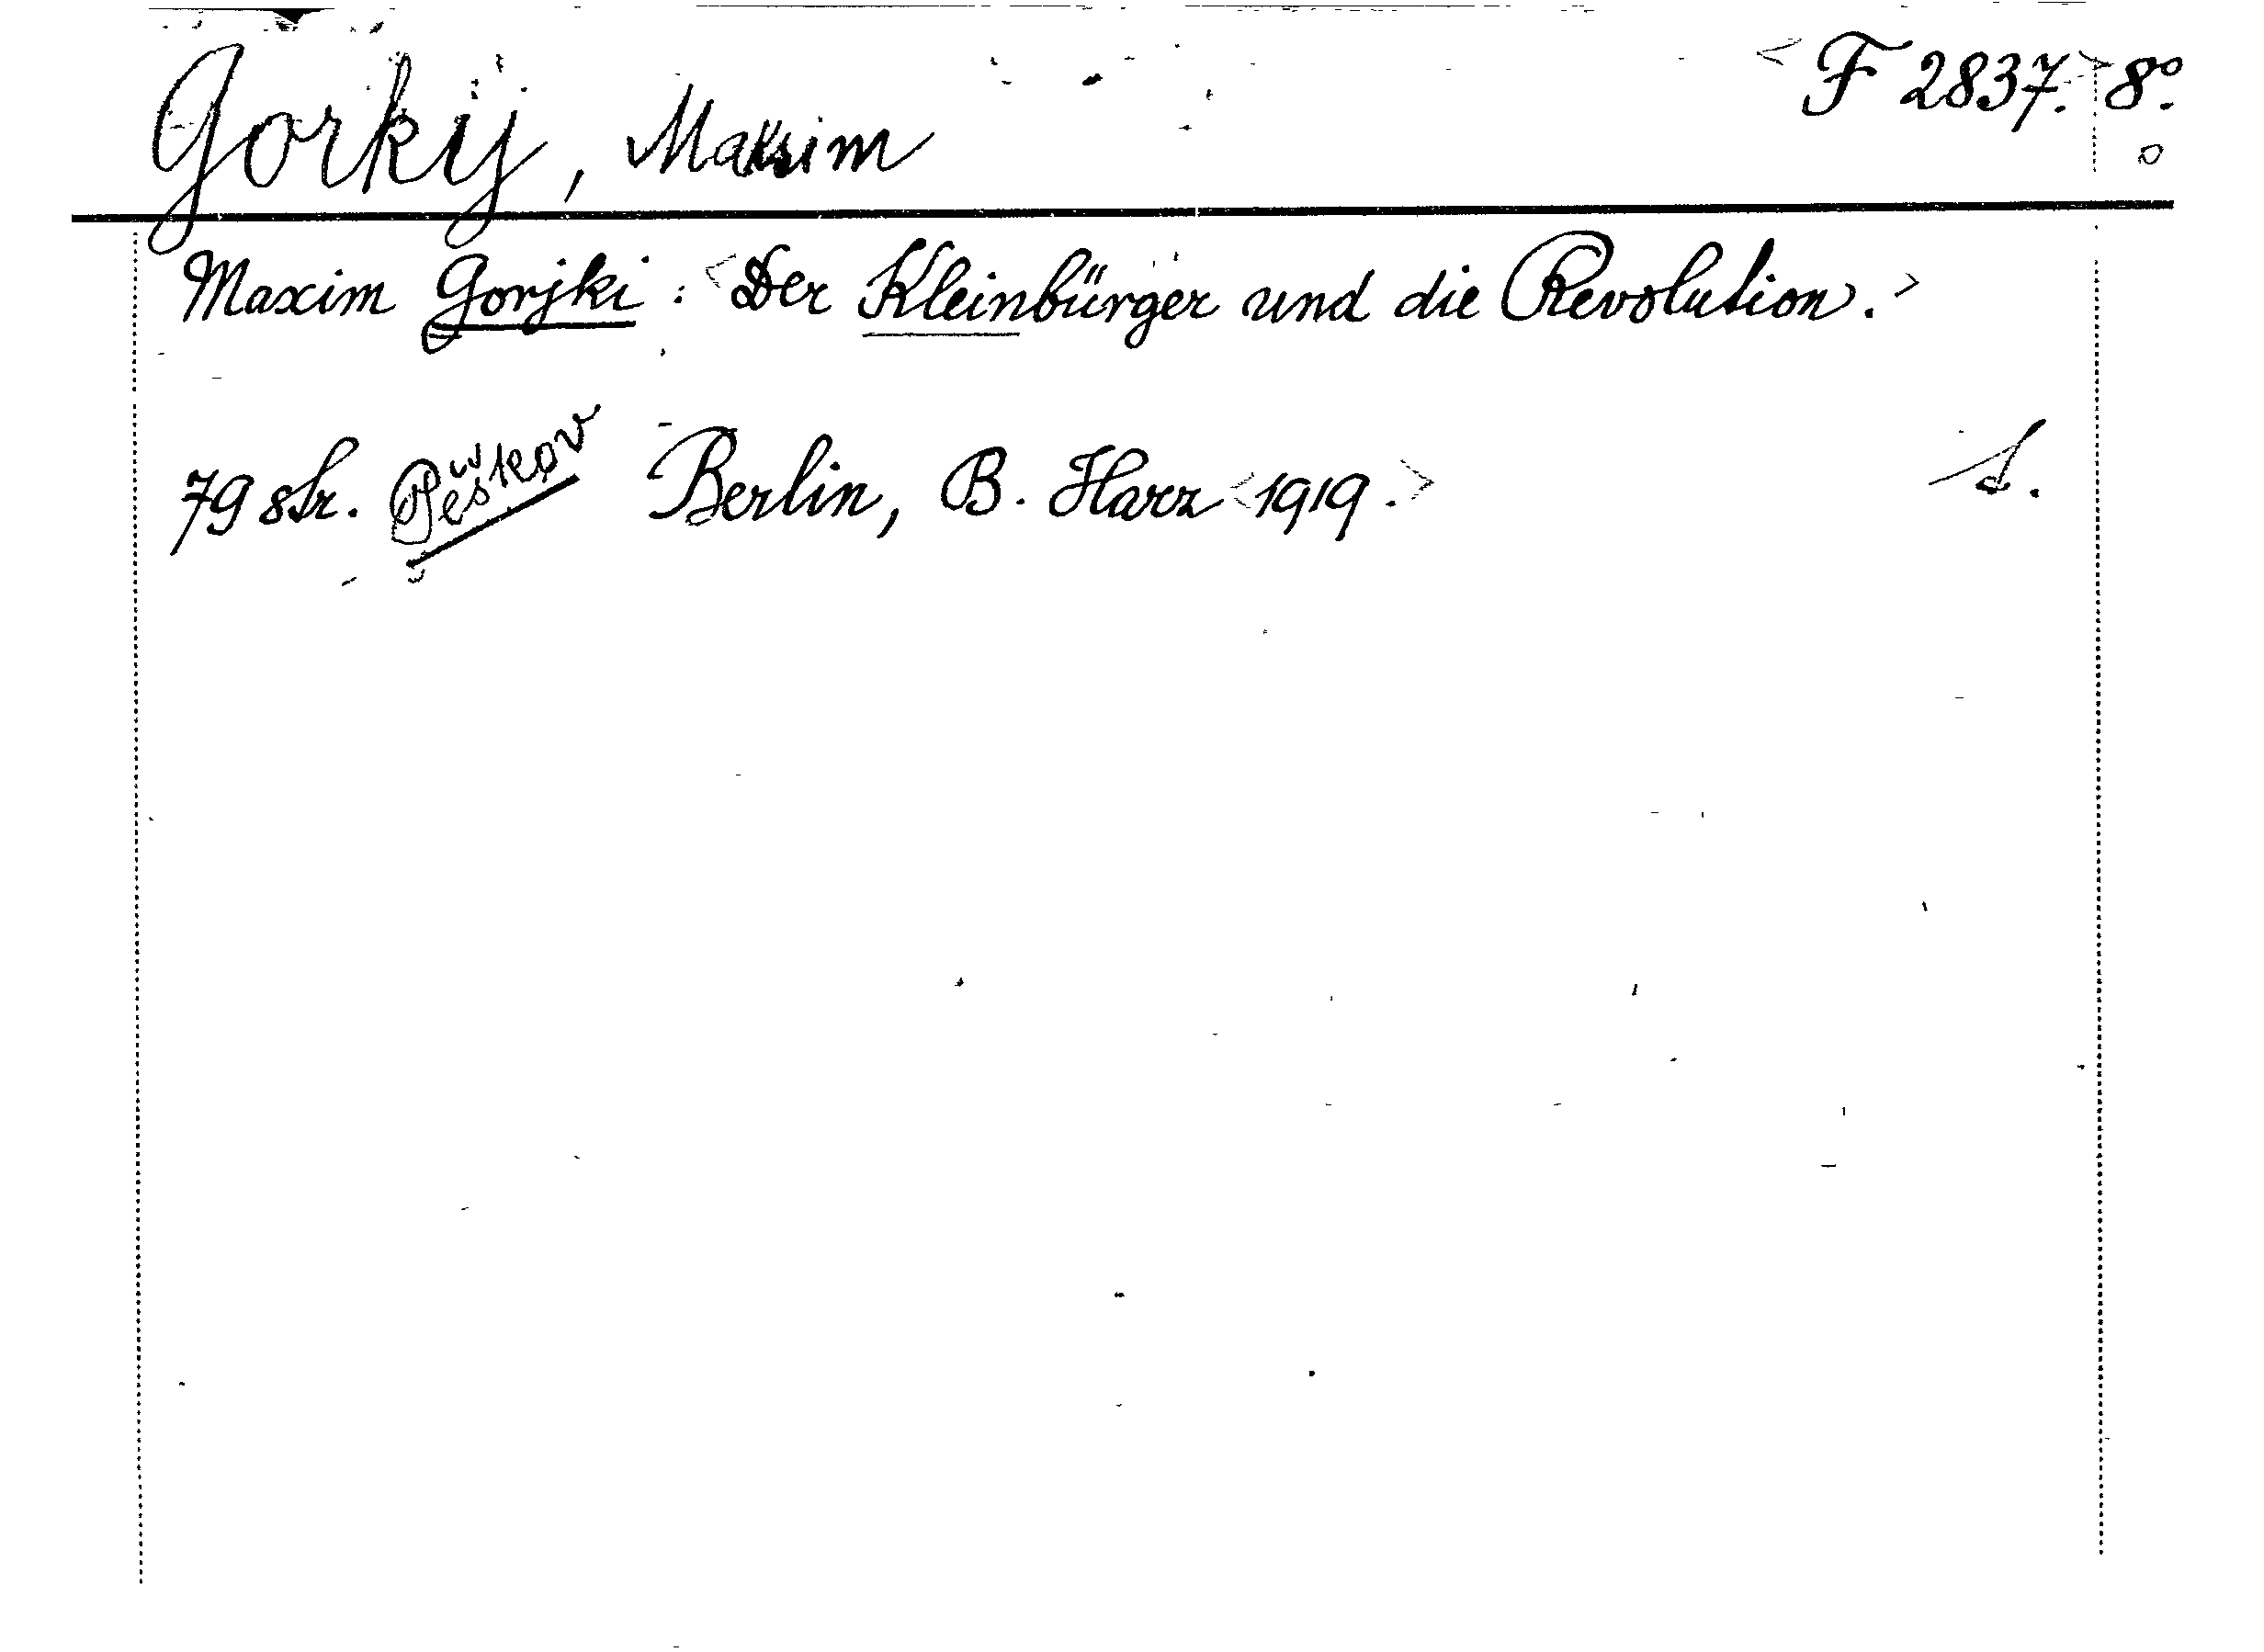 Gorkij, Maksim <F 2837.> 8°.
Maxim Gorjki : <Der Kleinbürger und die Revolution.>
79 str. Pěškov Berlin, B. Harz <1919.>